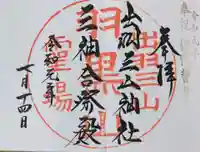 奉拝
出羽三山神社
三神合祭殿
令和元年
十月十四日
出羽三山
羽黒山
霊場